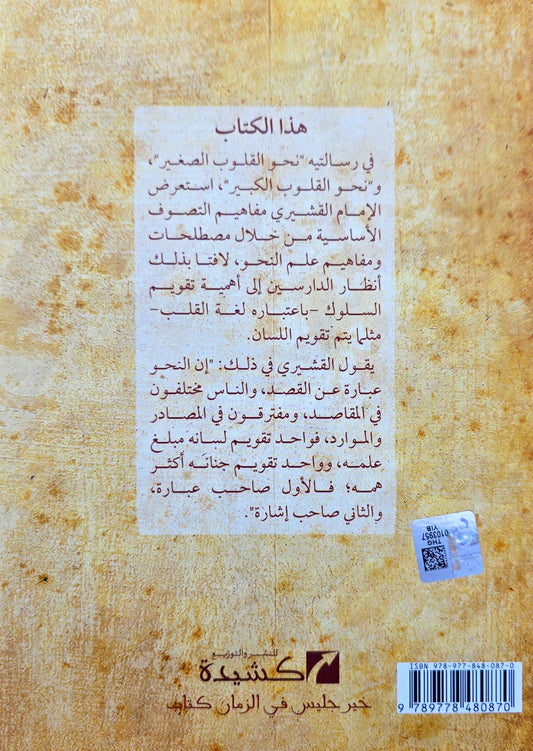 هذا الكتاب
في رسالتيه "نحو القلوب الصغير"،
و"نحو القلوب الكبير"، استعرض
الإمام القشيري مفاهيم التصوف
الأساسية من خلال مصطلحات
ومفاهيم علم النحو، لافتا بذلك
أنظار الدارسين إلى أهمية تقويم
السلوك -باعتباره لغة القلب-
مثلما يتم تقويم اللسان.
يقول القشيري في ذلك: "إن النحو
عبارة عن القصد، والناس مختلفون
في المقاصد، ومفترقون في المصادر
والموارد، فواحد تقويم لسانه مبلغ
علمه، وواحد تقويم جنانَه أكثر
همه؛ فالأول صاحب عبارة،
والثاني صاحب إشارة".
THG
0103957
YIB
للنشر والتوزيع
كشيدة
خير جليس في الزمان كتاب
ISBN 978-977-848-087-0
9 789778 480870